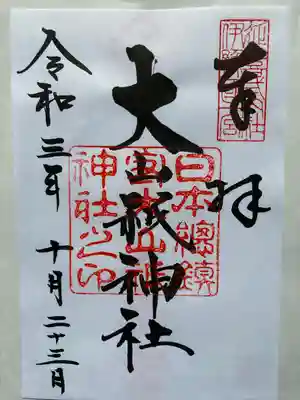 奉拝
日本總鎮
大山祇神社
神社之印
令和三年 十月二十三日